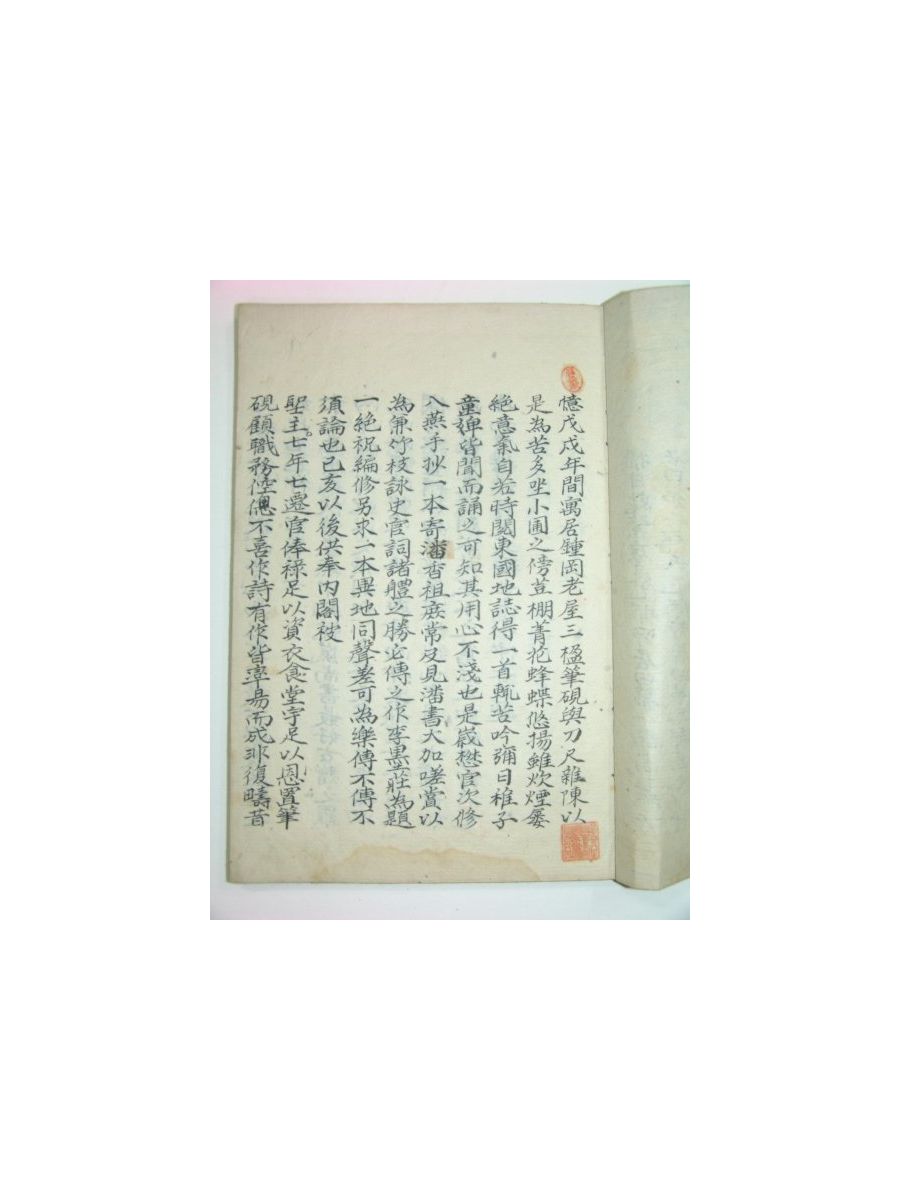 憶戊戌年間寓居鍾岡老屋三楹筆硯與刀尺雜陳以
是為苦多坐小圃之傍荳棚菁花蜂蝶悠揚雖炊煙屢
絶意氣自若時閱東國地誌得一首輒苦吟彌日稚子
童婢皆聞而誦之可知其用心不淺也是歲懋官次修
入燕手抄一本寄潘香祖庶常及見潘書大加嗟賞以
為兼竹枝詠史宮詞諸軆之勝必傳之作李墨莊為題
一絶祝編修另求一本異地同聲差可為樂傳不傳不
須論也己亥以後供奉內閣被
聖主七年七遷官俸祿足以資衣食堂宇足以息置筆
硯顧職務倥傯不喜作詩有作皆率易而成非復疇昔